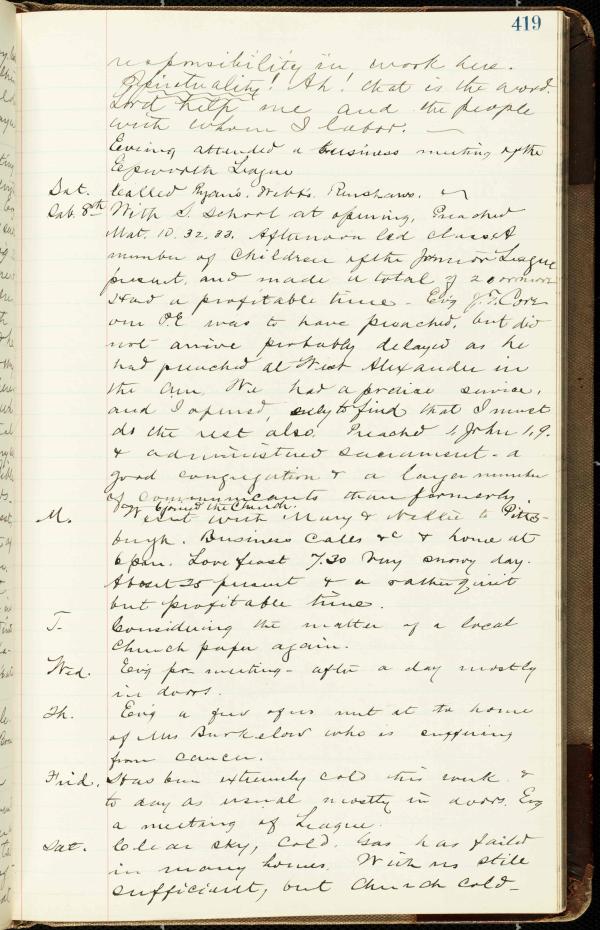 419
responsibility in work here.
Spirituality! Ah! that is the word.
Lord help me and the people
with whom I labor.
Evening attended a business meeting of the
Epworth League
Sat. Called Ryan's. Webbs. Renshaws.
Sab. 8th With S. School at opening. Preached
Mat. 10. 32, 33. Afternoon led class. A
number of Children of the Junior League
present, and made a total of
Had a profitable time - Evg J. T.
our P.E. was to have preached, but did
not arrive probably delayed as he
had preached at West Alexander in
the A.M. We had a praise service,
and I opened, only to find that I must
do the rest also. Preached 1, John 1, 9.
& administered sacrament - a
good congregation & a larger number
of communicants than formerly.
joined the Church.
M. Went with Mary & Nellie to Pitts-
burgh. Business Calls &c & home at
6 p.m. Love feast 7.30 Very snowy day.
About 25 present & a rather quiet
but profitable time.
T- Considering the matter of a local
Church paper again.
Wed. Evg pr- meeting - after a day mostly
in doors.
Th. Evg a few of us met at the home
of Mrs who is suffering
from cancer.
Frid. Has been extremely cold this week &
to day as usual mostly in doors. Evg
a meeting of League.
Sat. Clear sky, cold. Gas has failed
in many homes. With us still
sufficient, but Church cold-